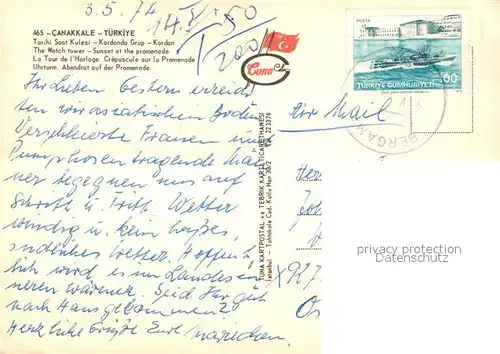 3.5.74
465 – ÇANAKKALE – TÜRKİYE
Tarihi Saat Kulesi – Kordonda Grup – Kordon
The Watch tower – Sunset at the promenade
La Tour de l'Horloge Crépuscule sur la Promenade
Uhrturm. Abendrot auf der Promenade.
Tuna
POSTA
TÜRKİYE CUMHURİYETİ
60
Ihr Lieben Gestern erreich
ten wir asiatischen Boden
Verschleierte Frauen und
Pumphosen tragende Män
ner begegnen uns auf
Schritt u. Tritt. Wetter
windig u. kein heißes,
südliches Wetter. Hoffent
lich wird es im Landesin
neren wärmer. Seid Ihr gut
nach Haus gekommen?
Herzliche Grüße Eure Mariechen.
Air Mail
BERGAMA
TUNA KARTPOSTAL ve TEBRİK KARTI TİCARETHANESİ
İstanbul - Tahtakale Cad. Kutlu Han 30/2 Tel. 223376
privacy protection
Datenschutz